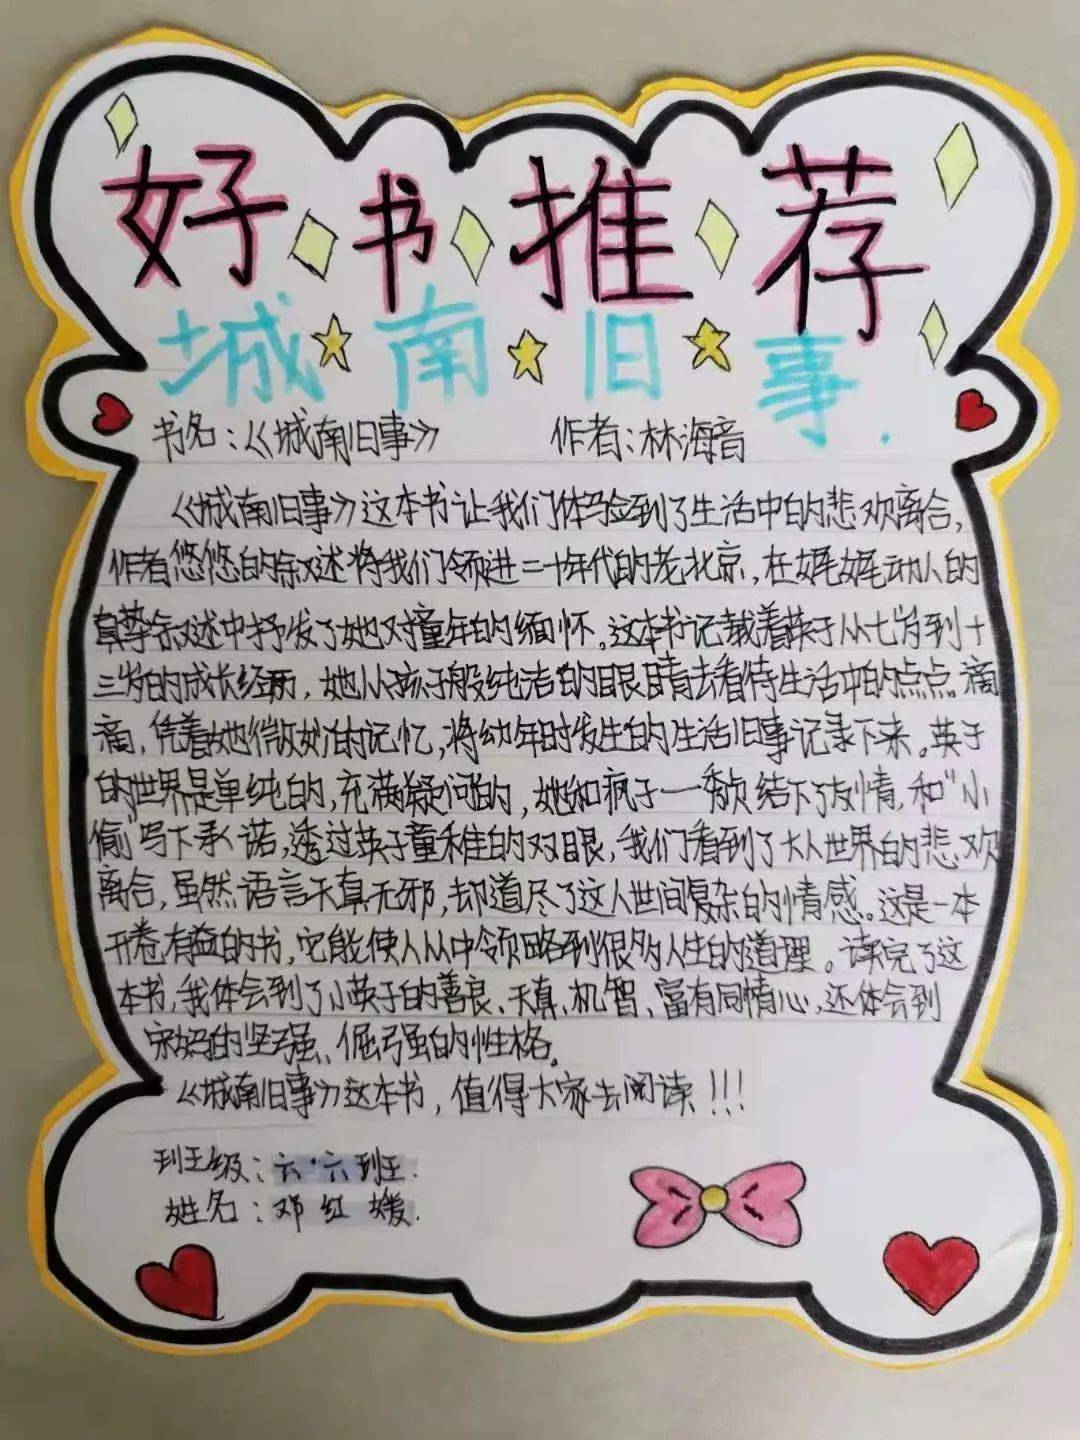 好书推荐
城南旧事
书名:《城南旧事》 作者:林海音
《城南旧事》这本书让我们体验到了生活中的悲欢离合,
作者悠悠的叙述将我们领进二十年代的老北京,在娓娓动人的
真挚叙述中抒发了她对童年的缅怀。这本书记载着英子从七岁到十
三岁的成长经历,她以小孩子般纯洁的眼睛去看待生活中的点点滴
滴,凭着她微妙的记忆,将幼年时发生的生活旧事记录下来。英子
的世界是单纯的,充满疑问的,她和疯子一秀贞结下了友情,和“小
偷”写下承诺,透过英子童稚的双眼,我们看到了大人世界的悲欢
离合,虽然语言天真无邪,却道尽了这人世间复杂的情感。这是一本
开卷有益的书,它能使人从中领略到很多人生的道理。读完了这
本书,我体会到了小英子的善良、天真、机智、富有同情心,还体会到
宋妈的坚强、倔强的性格。
《城南旧事》这本书,值得大家去阅读!!!
班级:六·六班.
姓名:邓红媛.